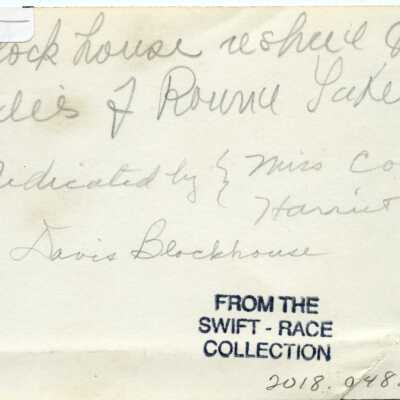 lock house
dies of Round Lake
Dedicated by { Miss Co
Harriet
Davis Blockhouse
FROM THE
SWIFT - RACE
COLLECTION
2018.948.